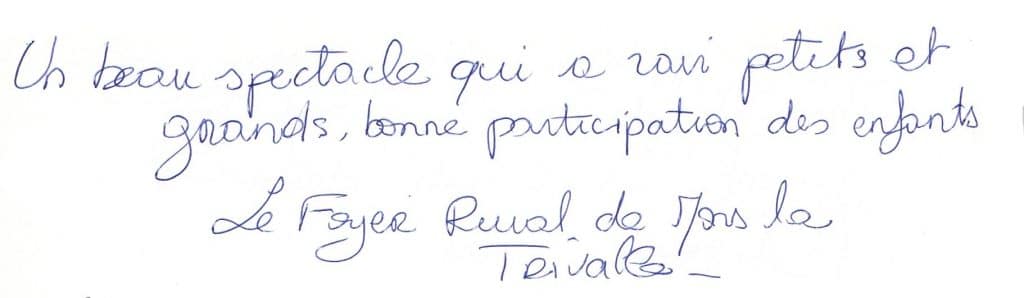 Un beau spectacle qui a ravi petits et
grands, bonne participation des enfants
Le Foyer Rural de Mons la
Trivalle -